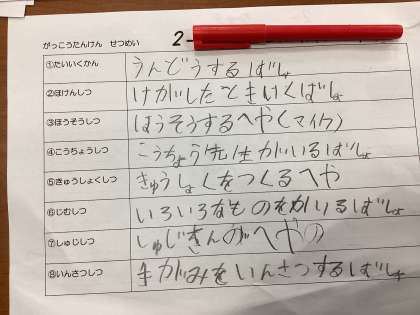 がっこうたんけん せつめい 2-
①たいいくかん うんどうするばしょ
②ほけんしつ けがしたときいくばしょ
③ほうそうしつ ほうそうするへや(マイク)
④こうちょうしつ こうちょう先生がいるばしょ
⑤きゅうしょくしつ きゅうしょくをつくるへや
⑥じむしつ いろいろなものを るばしょ
⑦しゅじしつ しゅじさんのへや
⑧いんさつしつ 手がみをいんさつするばしょ